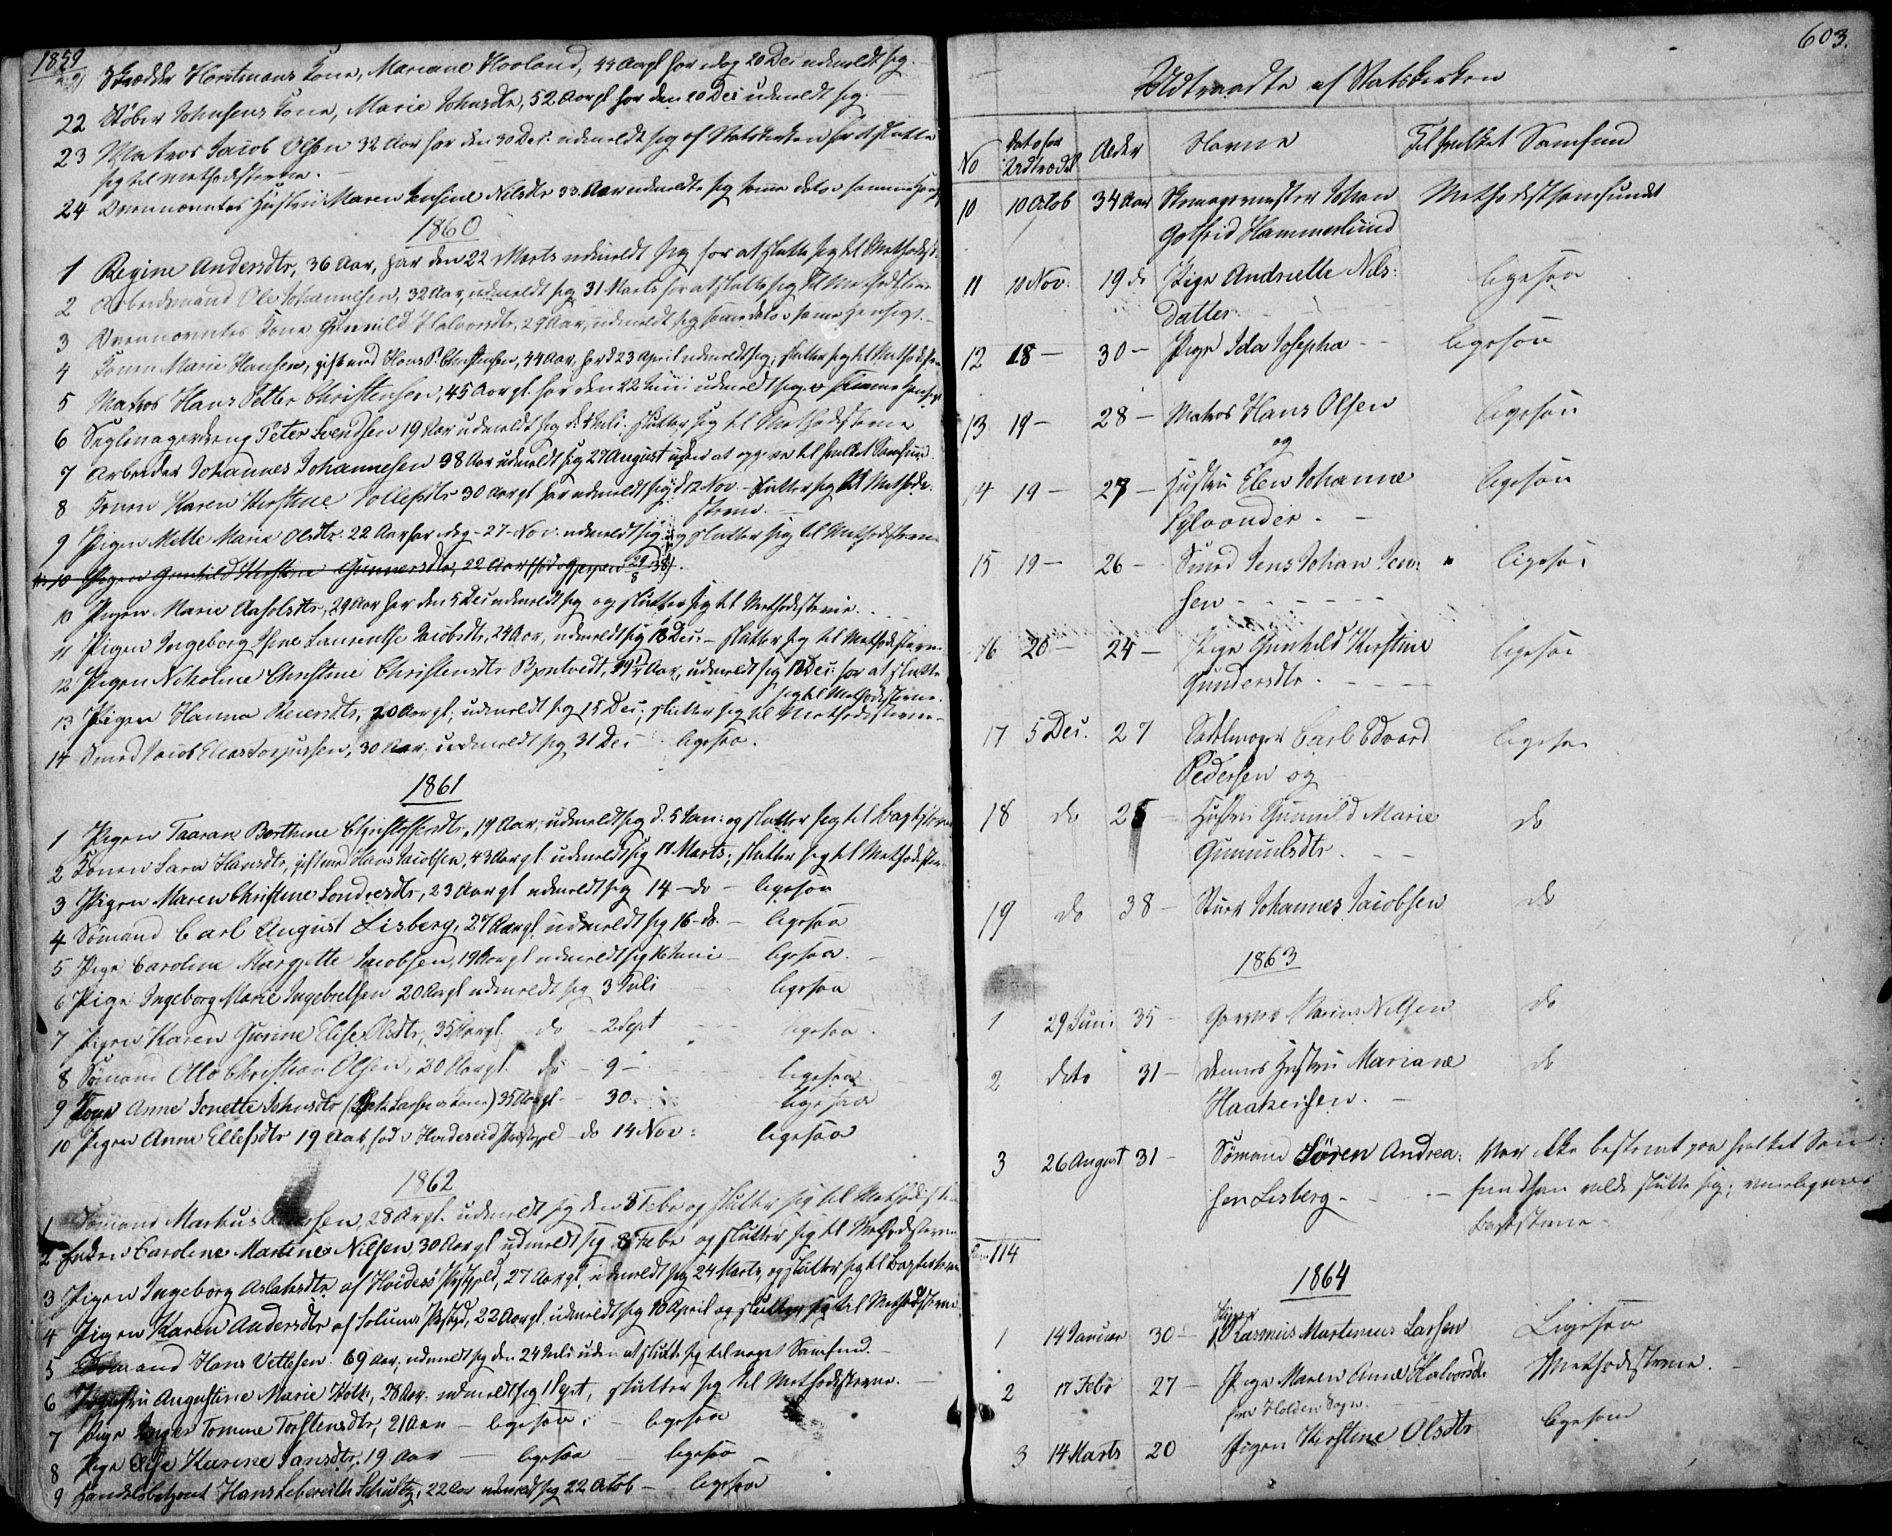 1859
Skrædder Horstmans Kone, Mariane Hovland, 44 Aargl har idag 20 Dec udmeldt sig.
22 Støber Johnsens Kone, Marie Johnsdtr, 52 Aargl har den 20 Dec udmeldt sig.
23 Matros Jacob Olsen 32 Aar har den 30 Dec. udmeldt sig af Statskirken for at slutte
sig til Methodisterne.
24 Ovennævntes Hustru Maren Jensine Nilsdtr 33 Aar udmeldte sig samme dato i samme Hensigt
1860
1 Regine Andersdtr, 36 Aar, har den 22 Marts udmeldt sig for at slutte sig til Methodist.
2 Arbeidsmand Ole Johannesen, 32 Aar, udmeldt sig 31 Marts for at slutte sig til Methodisterne
3 Ovennævntes Kone Gunnild Halvorsdtr, 29 Aar, udmeldt sig samme dato i samme Hensigt.
4 Konen Marie Hansen, gift med Hans P. Christensen, 44 Aar, har d 23 April udmeldt sig; slutter sig til Methodisterne
5 Matros Hans Petter Christensen, 45 Aargl. har den 22 Juni udmeldt sig i samme Hensigt
6 Seglmagerdreng Peter Svendsen 19 Aar udmeldt sig d. Juli. slutter sig til Methodisterne
7 Arbeider Johannes Johannesen 38 Aar udmeldt sig 27 August uden at opgive til hvilket Samfund
8 Konen Karen Kirstine Tollefsdtr 30 Aargl har udmeldt sig d 12 Nov. - slutter sig til Methodi-
sterne.
9 Pigen Mette Marie Olsdtr. 22 Aar har idag - 27 Nov. udmeldt sig og slutter sig til Methodisterne
10 Pigen Gunhild Kirstine Gunnersdtr, 22 Aar (fød i Gjerpen 29/8 38).
10 Pigen Marie Aasolsdtr, 29 Aar har den 5 Dec udmeldt sig og slutter sig til Methodisterne.
11 Pigen Ingeborg Laurentse Jacobsdtr, 24 Aar, udmeldt sig 13 Dec. - slutter sig til Methodisterne
12 Pigen Nicholine Christine Christensdtr Bjøntvedt, 19 1/2 Aar, udmeldt sig 13 Dec. for at slutte
sig til Methodisterne.
13 Pigen Hanna Reiersdtr, 20 Aargl; udmeldt sig 15 Dec; slutter sig til Methodisterne
14 Smed Jacob Elias Torjussen, 30 Aar. udmeldt sig 31 Dec ligesaa.
1861
1 Pigen Taaran Berthine Christoffersdtr, 19 Aar, udmeldt sig d. 5 Jan: og slutter sig til Baptisterne
2 Konen Sara Hansdtr, gift med Hans Jacobsen, 43 Aargl. udmeldt sig 11 Marts; slutter sig til Methodister
3 Pigen Maren Christine Sondresdtr, 23 Aargl udmeldt sig 14 - do - ligesaa
4 Sømand Carl August Lisberg, 27 Aargl. udmeldt sig 16 - do. - ligesaa
5 Pige Caroline Margrette Jacobsen, 19 Aargl udmeldt sig 16 Juni - ligesaa.
6 Pige Ingeborg Marie Ingebretsen 20 Aargl udmeldt sig 3 Juli ligesaa
7 Pigen Karen Gurine Elise Olsdtr, 35 Aargl. do - 2 Sept ligesaa.
8 Sømand Otto Christian Olsen, 20 Aargl. do - 9 - ligesaa.
9 Kone Anne Jonette Johnsdtr (Larsens Kone) 35 Aargl - 30 ligesaa
10 Pigen Anne Ellefsdtr 19 Aar, fød i Hviteseid Præstgjeld - do 14 Nov: ligesaa
1862
1 Sømand Markus Larssen, 28 Argl. udmeldt sig den 3 Febr og slutter sig til Methodister
2 Enken Caroline Martine Nilsen, 30 Aargl udmeldt sig 8 Febr og slutter sig til Methodisterne
3 Pigen Ingeborg Aslaksdtr af Hvidesø Pstgjeld, 27 Aargl. udmeldt sig 24 Marts, og slutter sig til Baptisterne
4 Pigen Karen Andersdtr af Solums Pstgd, 22 Aargl, udmeldt sig 10 April og slutter sig til Methodisterne
5 Sømand Hans Vetlesen. 69 Aar, udmeldt sig den 24 Juli uden at slutte sig til noget Samfund. -
6 Jomfru Augustine Marie Holte, 28 Aar. udmeldt sig 1 Sept, slutter sig til Methodisterne. -
7 Pige Inger Tomine Torstensdtr, 21 Aar - ligesaa, - ligesaa
8 Pige Else Karine Jansdtr. 19 Aar - ligesaa ligesaa
9 Handelsbetjent Hans Leberecth Schultz, 22 Aar udmeldt sig 22 Octob - ligesaa
603.
Udtraadte af Statskirken
No Dato for Udtrædel. Alder Navne Til hvilket Samfund
10 10 Octob 34 Aar Skomagermester Johan Methodistsamfundet
Gotfrid Hammerlund
11 10 Nov: 19 do Pige Andriette Nils- ligesaa
datter.
12 18 - 30 - Pige Ida Josepha - ligesaa
13 19 - 28 - Matros Hans Olsen ligesaa
og
14 19 - 27 - Hustru Elen Johanne ligesaa
Sylvander. -
15 19 - 26 - Smed Jens Johan Jen- ligesaa
sen - - -
16 20 - 24 - Pige Gunhild Kirstine ligesaa
Gundersdtr. - - -
17 5 Dec. 27 Sadelmager Carl Edvard ligesaa
Pedersen og
18 do 25 - Hustru Gunnild Marie do
Gunnulsdtr. - -
19 do 38 - Stuer Johannes Jacobsen do
1863
1 29 Juni 35 - Garver Marius Nilsen do
2 dito 31 - Dennes Hustru Mariane do
Haakensen. -
3 26 August 31 - Sømand Søren Andrea- Var ikke bestemt paa hvilket Sam-
sen Lisberg - - - fund han vilde slutte sig; rimeligviis
Baptisterne
114
1864
1 14 Januar 30 - Rasmus Martinus Larsen Ligesaa
2 17 Febr 27 - Pige Maren Anne Halvorsdtr Methodisterne. -
fra Holden Sogn.
3 14 Marts 20 Pigen Kirstine Olsdtr ligesaa